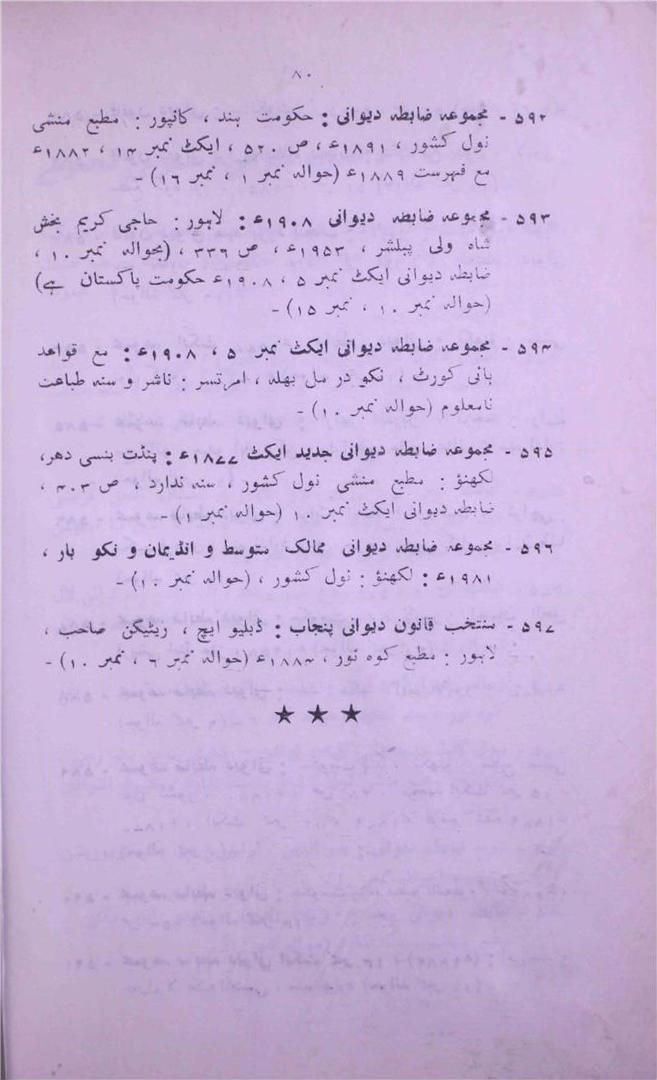 ۸۰
۵۹۲ - مجموعہ ضابطہ دیوانی : حکومت ہند ، کانپور : مطبع منشی
نول کشور ، ۱۸۹۱ء ، ص ۵۲۰ ، ایکٹ نمبر ۱۴ ، ۱۸۸۲ء
مع فہرست ۱۸۸۹ء (حوالہ نمبر ۱ ، نمبر ۱۶) -
۵۹۳ - مجموعہ ضابطہ دیوانی ۱۹۰۸ء : لاہور : حاجی کریم بخش
شاہ ولی پبلشر ، ۱۹۵۳ء ، ص ۳۳۶ ، (بحوالہ نمبر ۱۰ ،
ضابطہ دیوانی ایکٹ نمبر ۵ ، ۱۹۰۸ء حکومت پاکستان ہے)
(حوالہ نمبر ۱۰ ، نمبر ۱۵) -
۵۹۴ - مجموعہ ضابطہ دیوانی ایکٹ نمبر ۵ ، ۱۹۰۸ء : مع قواعد
ہائی کورٹ ، نکو در مل بھلہ ، امرتسر : ناشر و سنہ طباعت
نامعلوم (حوالہ نمبر ۱۰) -
۵۹۵ - مجموعہ ضابطہ دیوانی جدید ایکٹ ۱۸۷۷ء : پنڈت بنسی دھر،
لکھنؤ : مطبع منشی نول کشور ، سنہ ندارد ، ص ۴۰۳ ،
ضابطہ دیوانی ایکٹ نمبر ۱۰ (حوالہ نمبر ۱) -
۵۹۶ - مجموعہ ضابطہ دیوانی ممالک متوسط و انڈیمان و نکو بار ،
۱۹۸۱ء : لکھنؤ : نول کشور ، (حوالہ نمبر ۱۰) -
۵۹۷ - منتخب قانون دیوانی پنجاب : ڈبلیو ایچ ، ریٹیگن صاحب ،
لاہور : مطبع کوہ نور ، ۱۸۸۴ء (حوالہ نمبر ۶ ، نمبر ۱۰) -
★ ★ ★